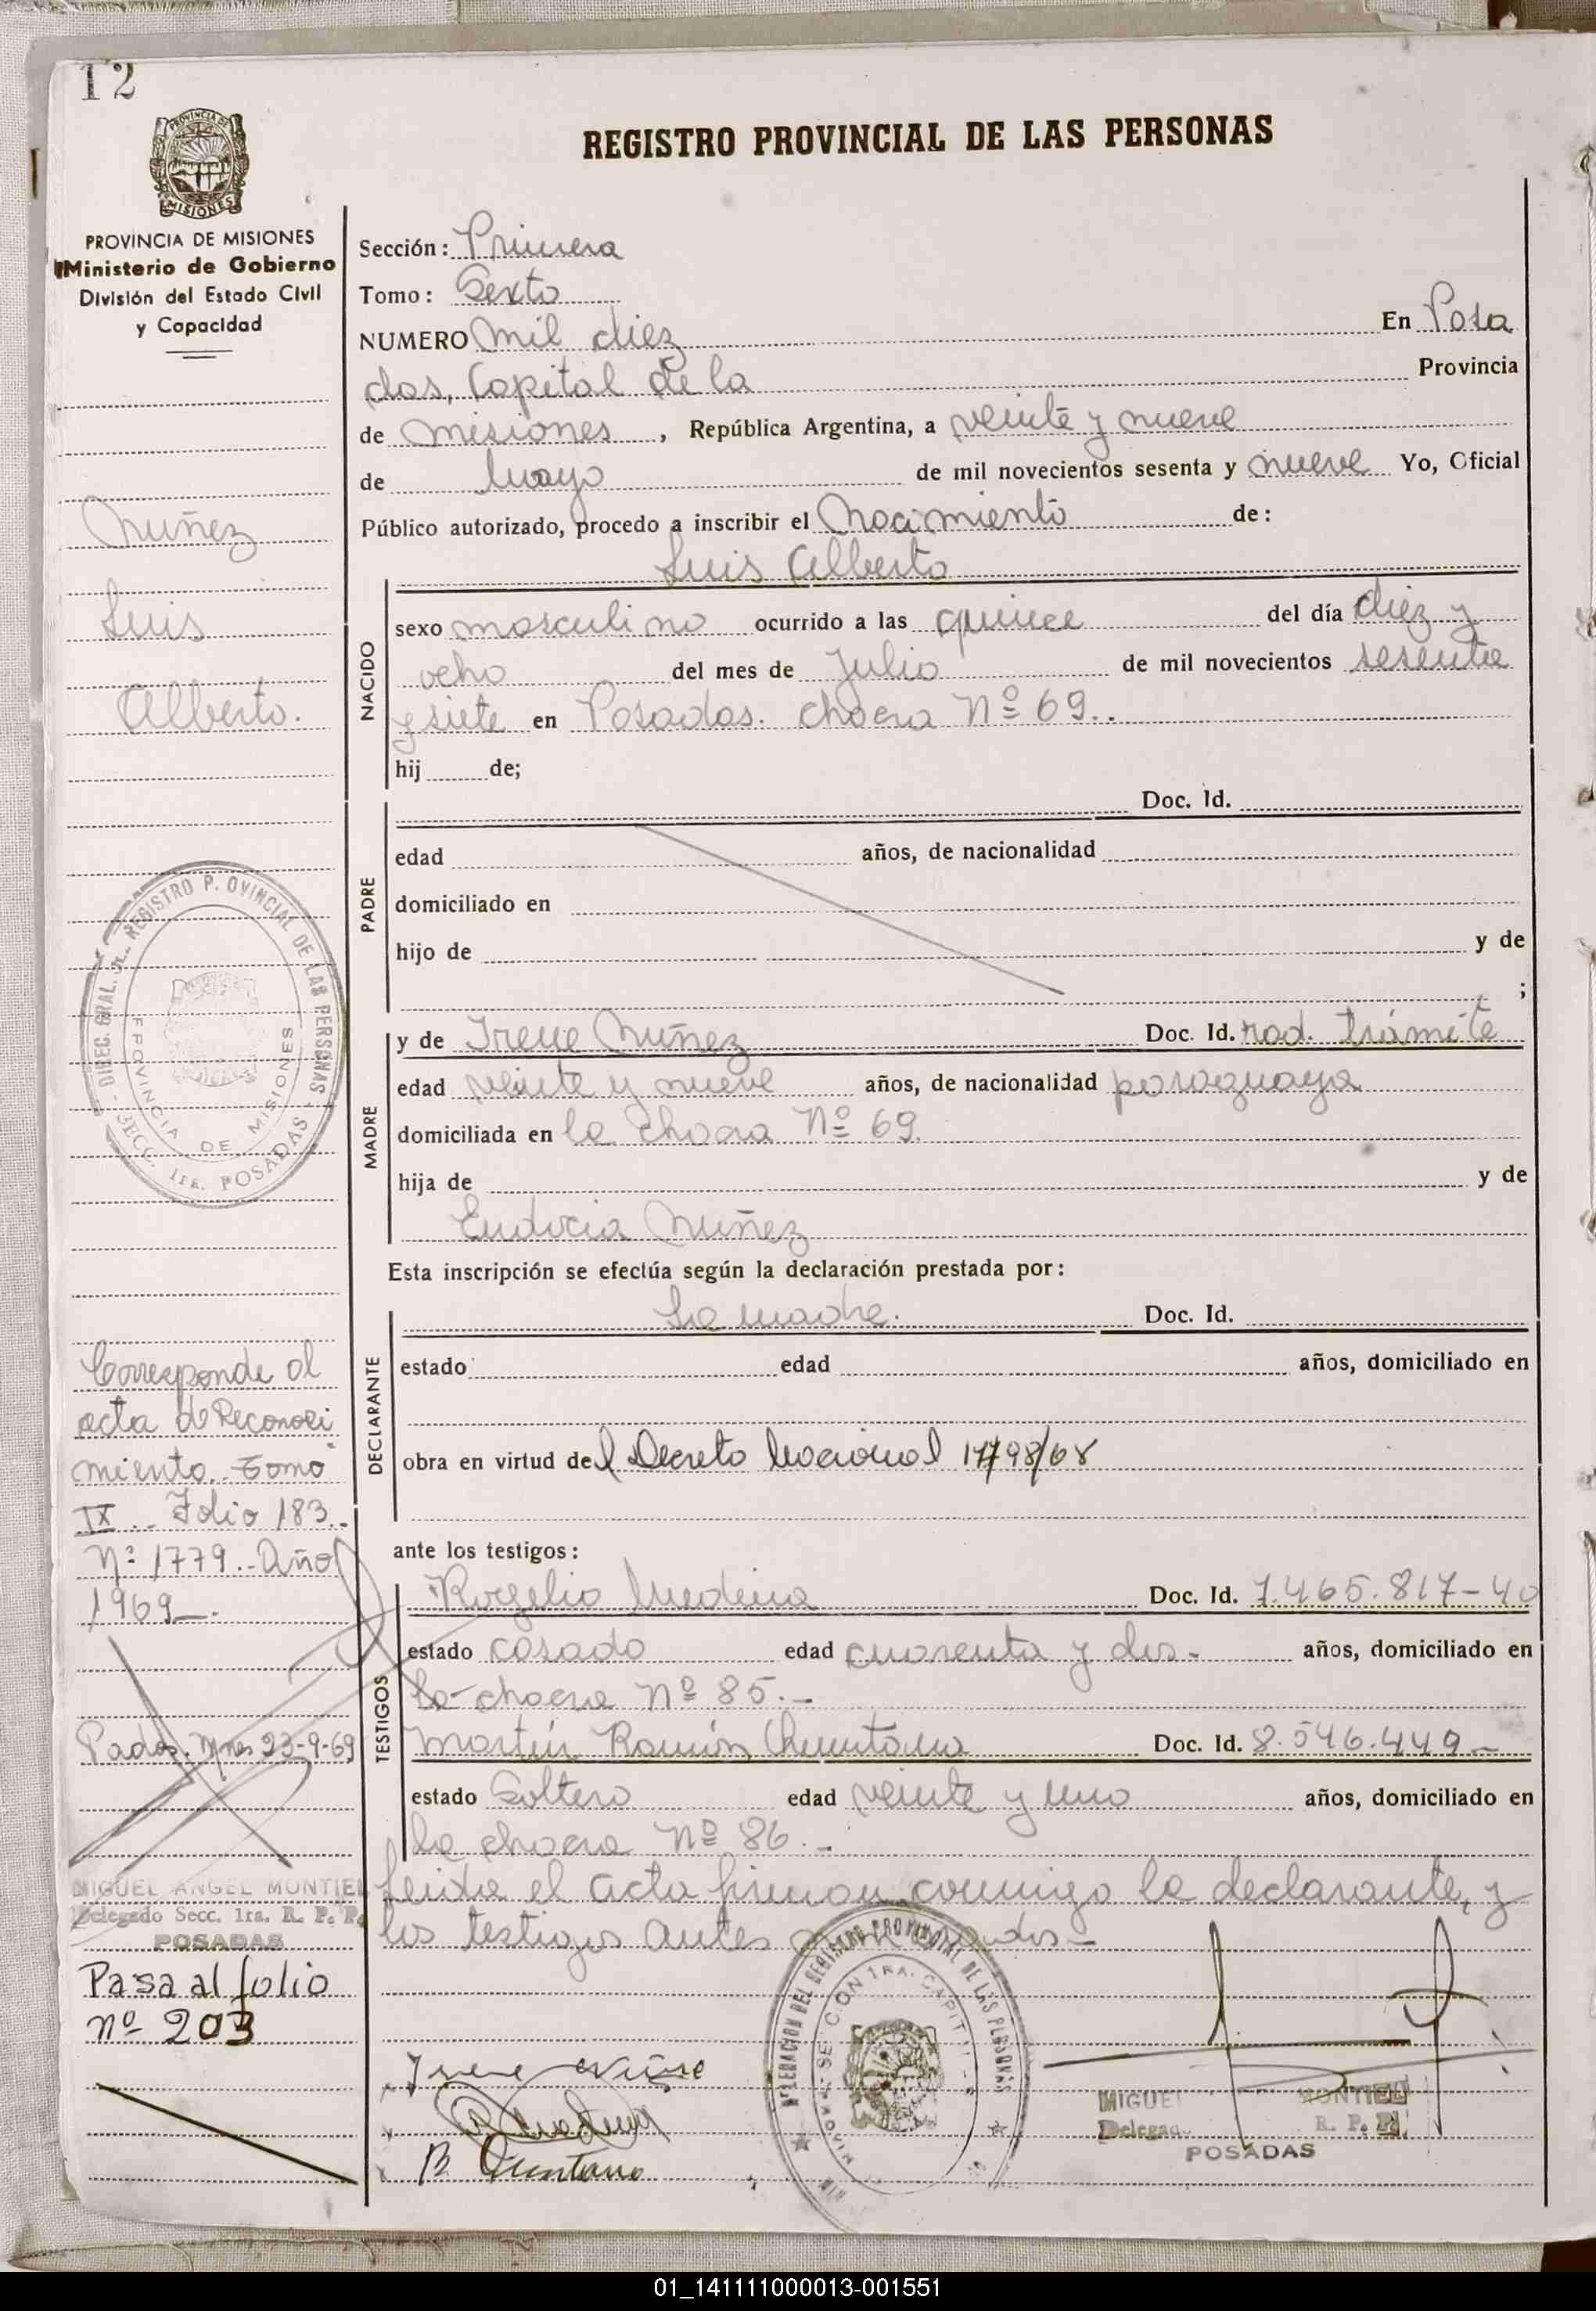 12
REGISTRO PROVINCIAL DE LAS PERSONAS
PROVINCIA DE
MISIONES
PROVINCIA DE MISIONES
Ministerio de Gobierno
División del Estado Civil
y Capacidad
Nuñez
Luis
Alberto.
DIREC. GRAL. DEL REGISTRO P. OVINCIAL DE LAS PERSONAS
PROVINCIA DE MISIONES
SECC. 1ra. POSADAS
Corresponde al
acta de Reconoci
miento. Tomo
IX. Folio 183.
Nº 1779.- Año
1969-.
Padas. Mnes 23-9-69
MIGUEL ANGEL MONTIEL
Delegado Secc. 1ra. R. P. P.
POSADAS
Pasa al folio
nº 203
Sección: Primera
Tomo: Sexto
NUMERO mil diez En Posa
das, Capital de la Provincia
de Misiones, República Argentina, a veinte y nueve
de Mayo de mil novecientos sesenta y nueve Yo, Oficial
Público autorizado, procedo a inscribir el Nacimiento de:
NACIDO
Luis Alberto
sexo masculino ocurrido a las quince del día diez y
ocho del mes de Julio de mil novecientos sesenta
y siete en Posadas. chacra Nº 69..
hij de;
PADRE
Doc. Id.
edad años, de nacionalidad
domiciliado en
hijo de y de
;
MADRE
y de Irene Nuñez Doc. Id. rad. trámite
edad veinte y nueve años, de nacionalidad paraguaya
domiciliada en la chacra Nº 69.
hija de y de
Eudocia Nuñez
Esta inscripción se efectúa según la declaración prestada por:
DECLARANTE
La madre. Doc. Id.
estado edad años, domiciliado en
obra en virtud del Decreto Nacional 17798/68
ante los testigos:
TESTIGOS
Rogelio Medina Doc. Id. 7.465.817-40
estado casado edad cuarenta y dos- años, domiciliado en
la chacra Nº 85.-
Martín Ramón Doc. Id. 8.546.449-
estado Soltero edad veinte y uno años, domiciliado en
la chacra Nº 86.-
Leida el acta firman conmigo la declarante, y
los testigos antes
DELEGACION DEL REGISTRO PROVINCIAL DE LAS PERSONAS
SECCION 1RA. CAPITAL
Irene
MIGUEL MONTIEL
Delegad R. P. P.
POSADAS
01_141111000013-001551